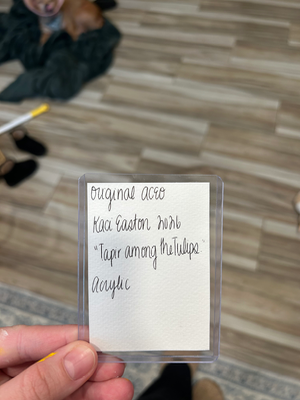 Original ACEO
Kaci Easton 2026
"Tapir among the Tulips"
Acrylic